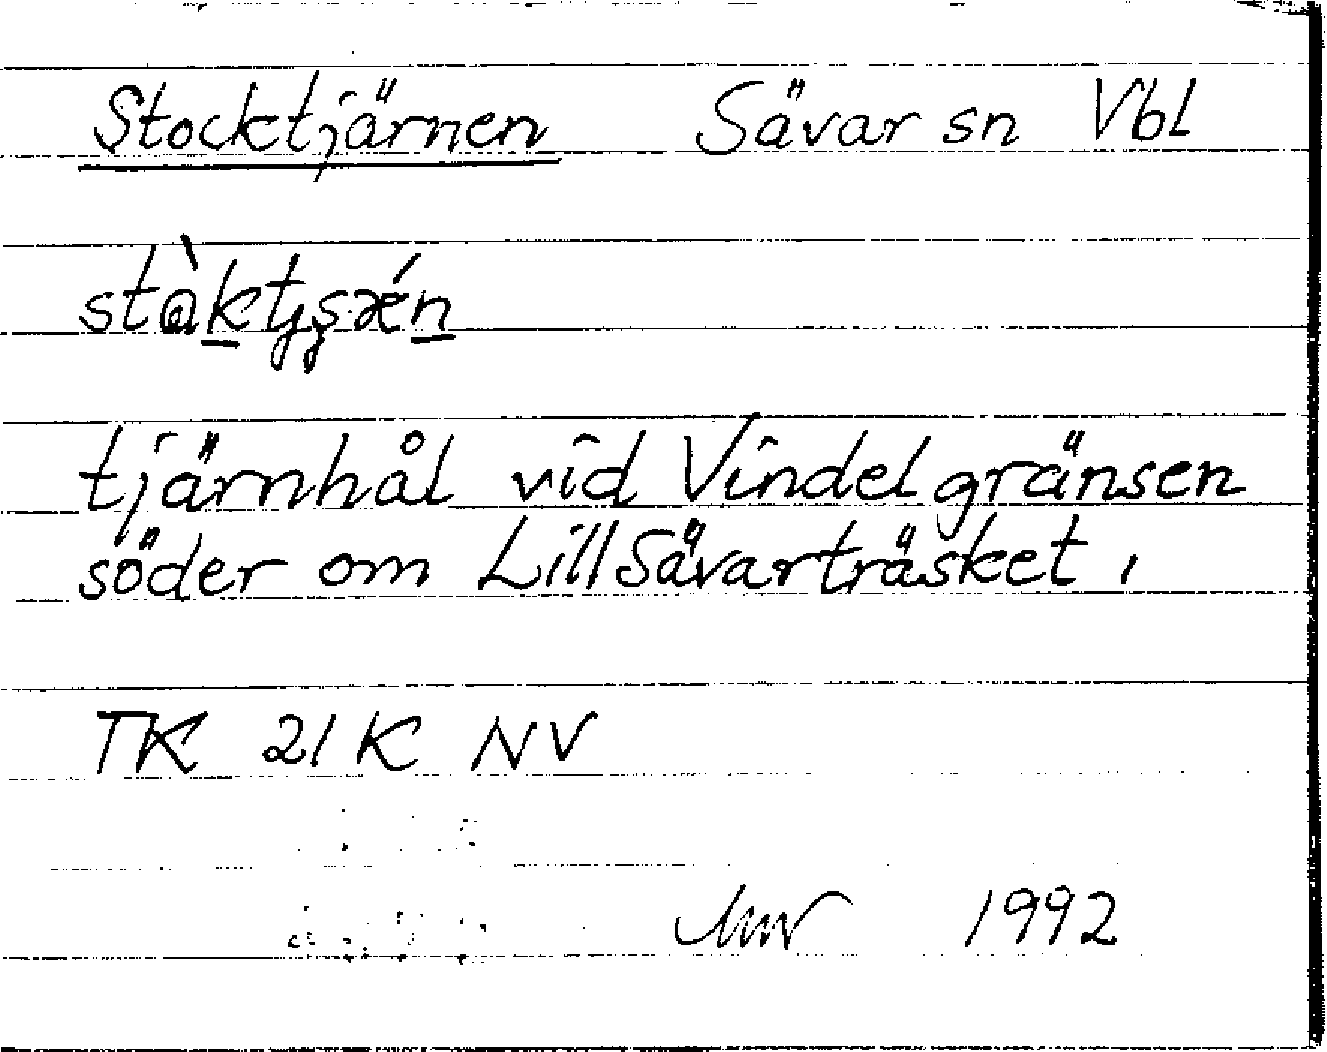 Stocktjärnen Sävar sn Vbl
tjärnhål vid Vindelgränsen
söder om Lillsävarträsket.
TK 21K NV
1992